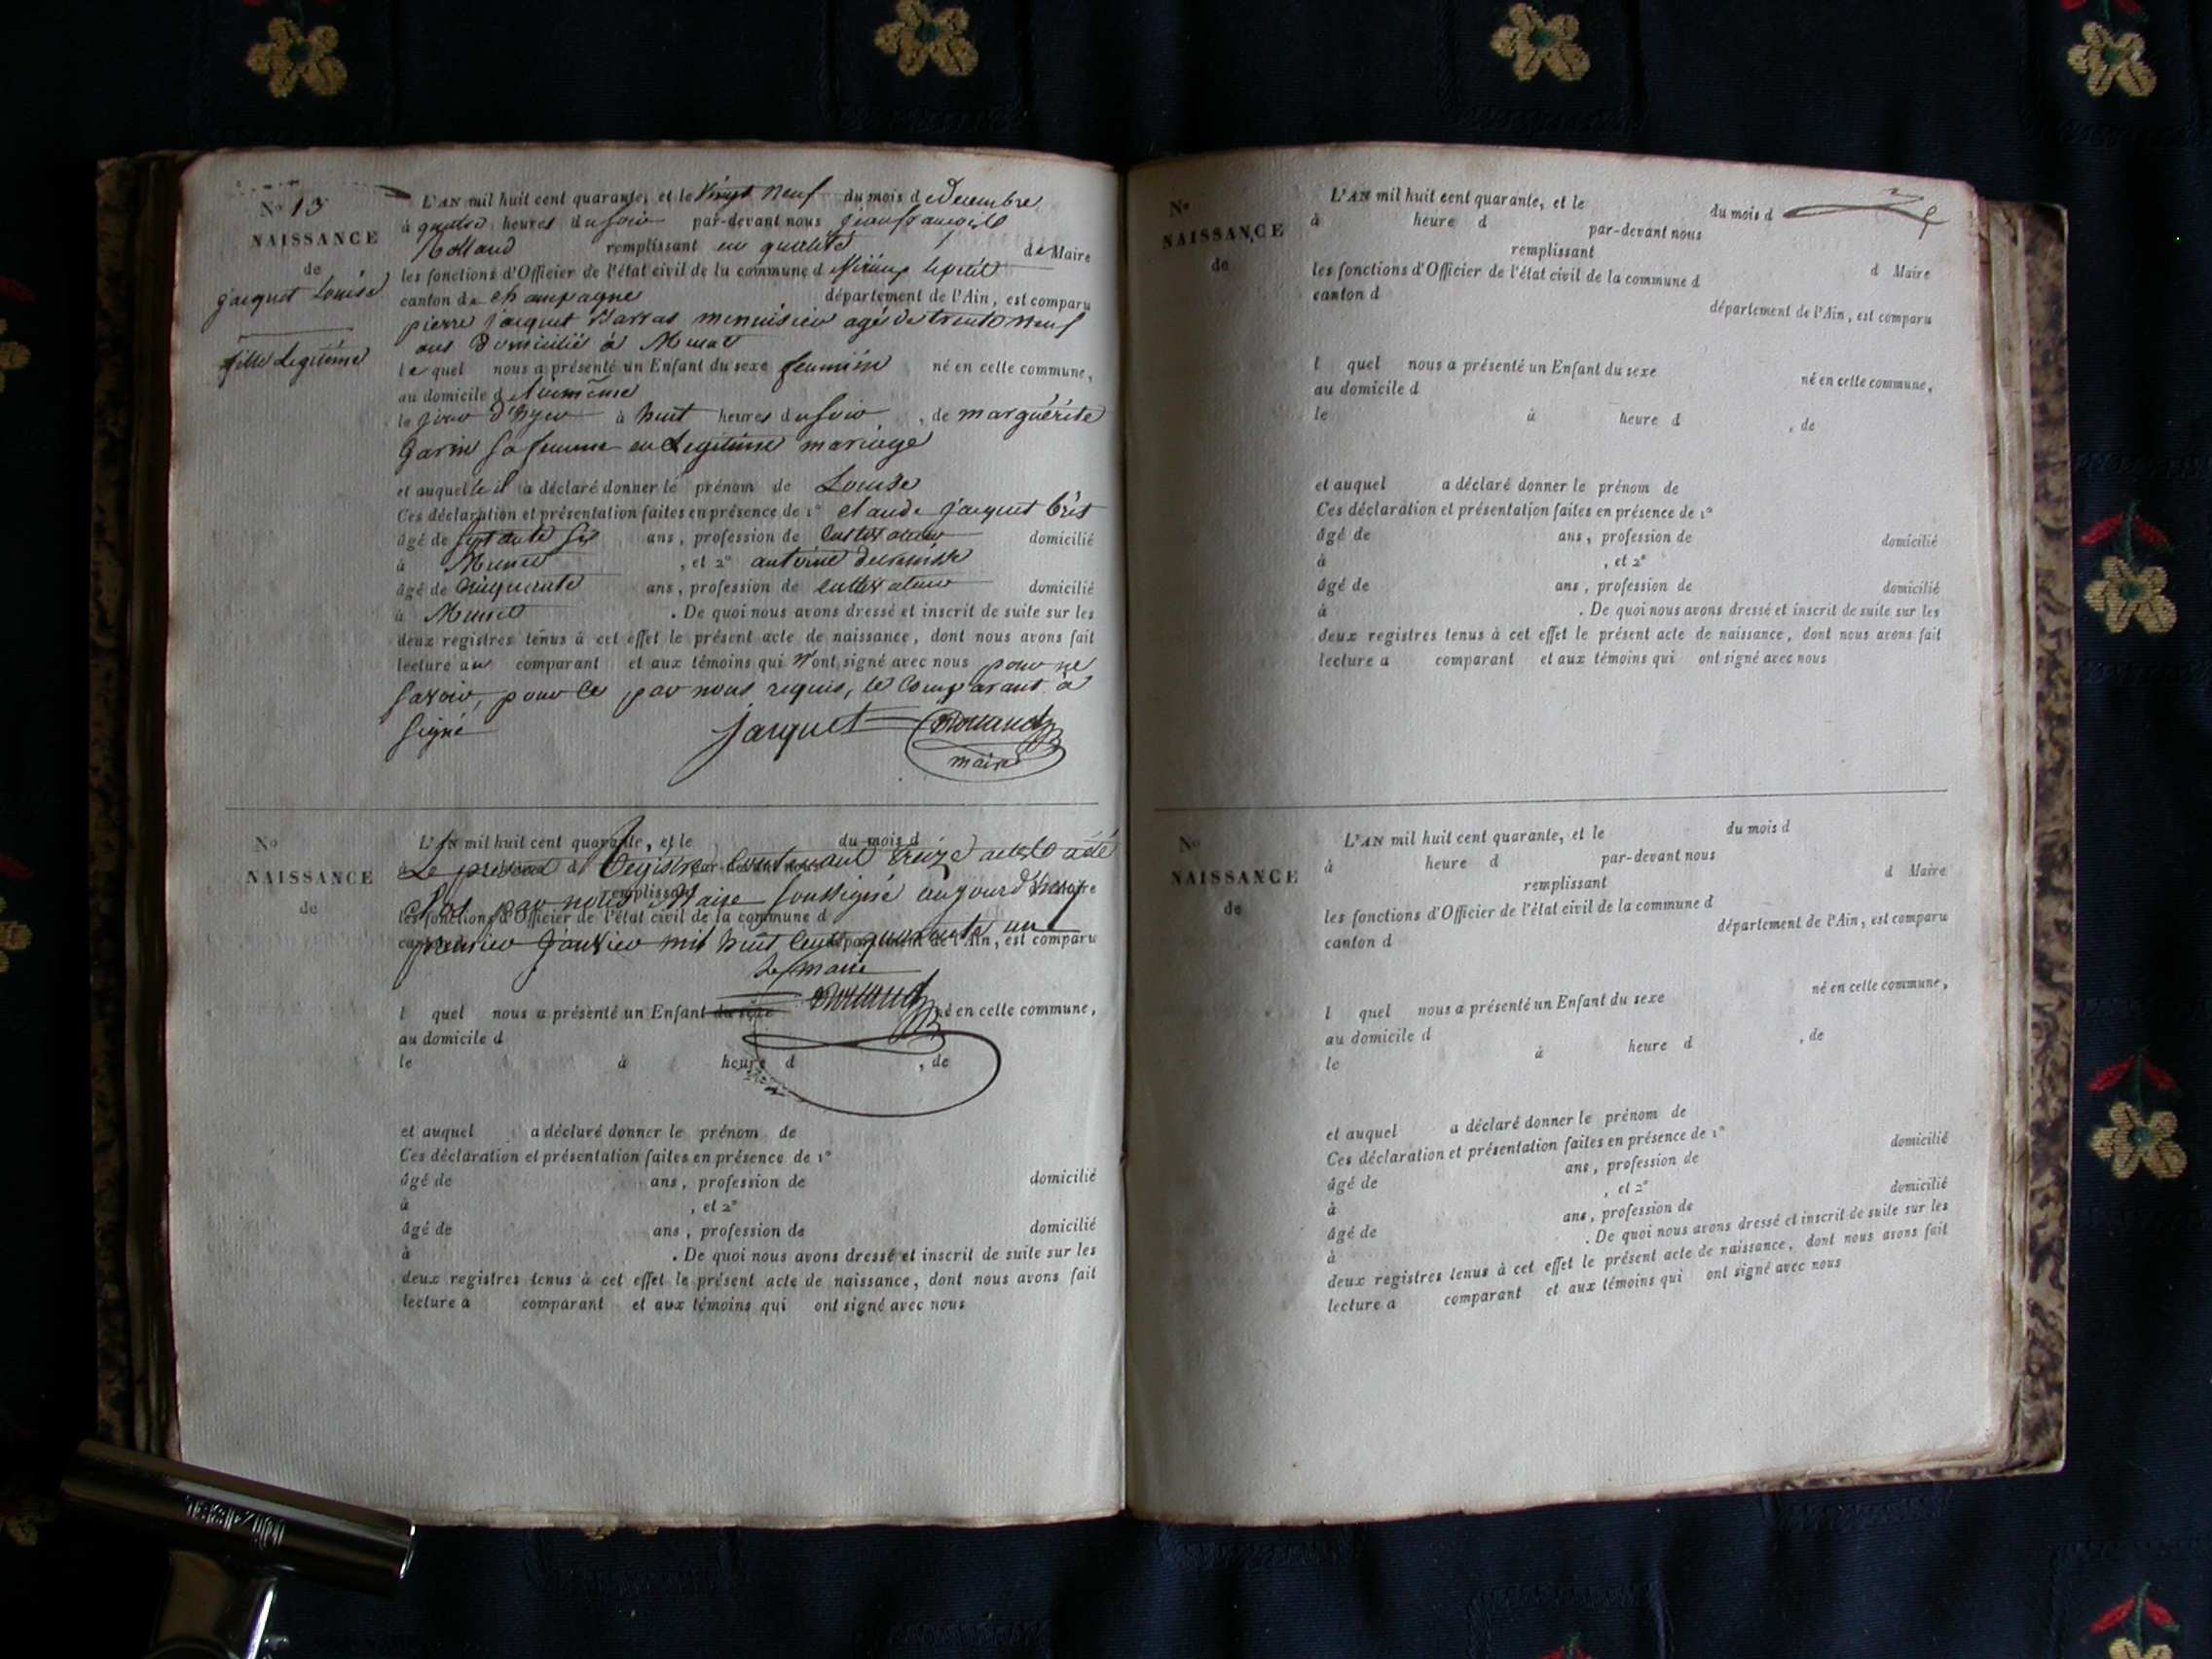 No 13
NAISSANCE
de
jacquet Louise
fille Legitime
L'AN mil huit cent quarante, et le Vingt neuf du mois de Decembre
à quatre heures du soir par-devant nous jean françois
Rolland remplissant en qualité de Maire
les fonctions d'Officier de l'état civil de la commune d
canton de Champagne département de l'Ain, est comparu
pierre jacquet Barras menuisier agé de trente neuf
ans Domicilié à
le quel nous a présenté un Enfant du sexe feminin né en cette commune,
au domicile d
le jour d'hyer à huit heures du soir, de marguérite
Garin sa femme en Legitime mariage
et auquel le il a déclaré donner le prénom de Louise
Ces déclaration et présentation faites en présence de 1° claude jacquet
âgé de septante six ans, profession de cultivateur domicilié
à , et 2° antoine
âgé de cinquante ans, profession de cultivateur domicilié
à . De quoi nous avons dressé et inscrit de suite sur les
deux registres tenus à cet effet le présent acte de naissance, dont nous avons fait
lecture au comparant et aux témoins qui n'ont signé avec nous pour ne
savoir, pour ce par nous requis, le comparant à
signé jacquet Rolland
maire
No
NAISSANCE
de
L'AN mil huit cent quarante, et le du mois d
Le présent Registre contenant treize actes a été
clos par nous Maire soussigné aujourd'huy
remplissant
les fonctions d'Officier de l'état civil de la commune d
premier janvier mil huit cent quarante un
département de l'Ain, est comparu
Le maire
Rolland
l quel nous a présenté un Enfant du sexe né en cette commune,
au domicile d
le à heure d , de
et auquel a déclaré donner le prénom de
Ces déclaration et présentation faites en présence de 1°
âgé de ans, profession de domicilié
à , et 2°
âgé de ans, profession de domicilié
à . De quoi nous avons dressé et inscrit de suite sur les
deux registres tenus à cet effet le présent acte de naissance, dont nous avons fait
lecture a comparant et aux témoins qui ont signé avec nous
No
NAISSANCE
de
L'AN mil huit cent quarante, et le du mois d
à heure d par-devant nous
remplissant d Maire
les fonctions d'Officier de l'état civil de la commune d
canton d département de l'Ain, est comparu
l quel nous a présenté un Enfant du sexe né en cette commune,
au domicile d
le à heure d , de
et auquel a déclaré donner le prénom de
Ces déclaration et présentation faites en présence de 1°
âgé de ans, profession de domicilié
à , et 2°
âgé de ans, profession de domicilié
à . De quoi nous avons dressé et inscrit de suite sur les
deux registres tenus à cet effet le présent acte de naissance, dont nous avons fait
lecture a comparant et aux témoins qui ont signé avec nous
No
NAISSANCE
de
L'AN mil huit cent quarante, et le du mois d
à heure d par-devant nous
remplissant d Maire
les fonctions d'Officier de l'état civil de la commune d
canton d département de l'Ain, est comparu
l quel nous a présenté un Enfant du sexe né en cette commune,
au domicile d
le à heure d , de
et auquel a déclaré donner le prénom de
Ces déclaration et présentation faites en présence de 1°
âgé de ans, profession de domicilié
à , et 2°
âgé de ans, profession de domicilié
à . De quoi nous avons dressé et inscrit de suite sur les
deux registres tenus à cet effet le présent acte de naissance, dont nous avons fait
lecture a comparant et aux témoins qui ont signé avec nous